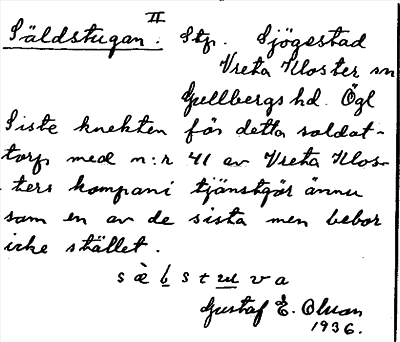 Säldstugan. II Stp. Sjögestad
Vreta Kloster sn
Gullbergs hd. Ögl
Siste knekten för detta soldat-
torp med n:r 41 av Vreta Klos-
ters kompani tjänstgör ännu
som en av de sista men bebor
icke stället.
Gustaf E. Olson
1936.